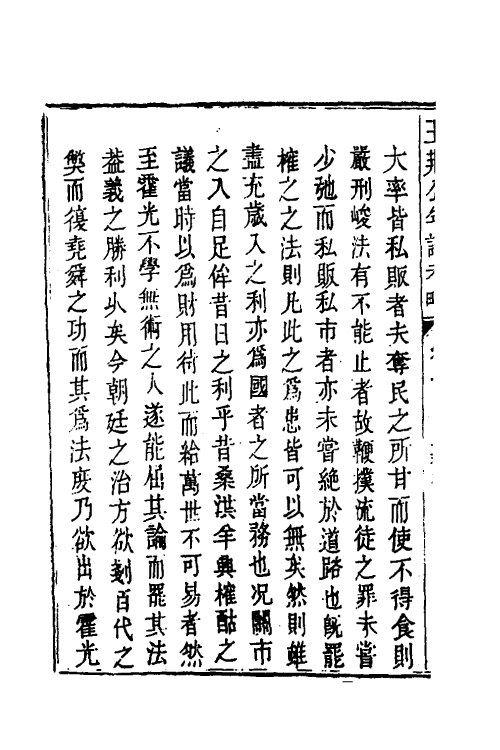 大率皆私販者夫奪民之所甘而使不得食則
嚴刑峻法有不能止者故鞭撲流徒之罪未嘗
少弛而私販私市者亦未嘗絶於道路也旣罷
榷之之法則凡此之爲患皆可以無矣然則雖
盡充歲入之利亦爲國者之所當務也况關市
之入自足侔昔日之利乎昔桑洪羊興榷酤之
議當時以爲財用待此而給萬世不可易者然
至霍光不學無術之人遂能屈其論而罷其法
葢義之勝利乆矣今朝廷之治方欲剗百代之
獘而復堯舜之功而其爲法度乃欲出於霍光